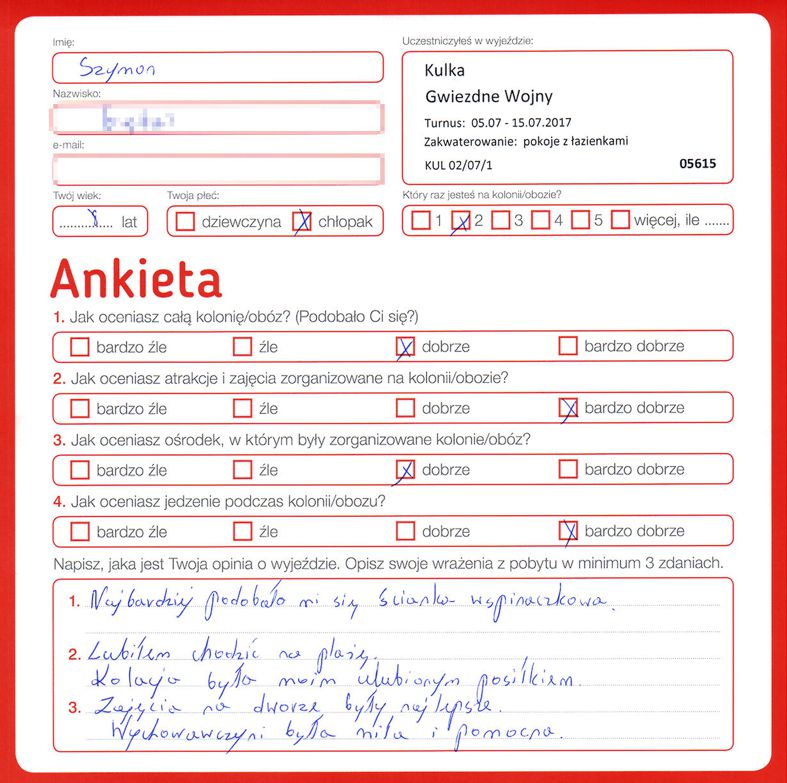 Imię:
Szymon
Uczestniczyłeś w wyjeździe:
Kulka
Gwiezdne Wojny
Turnus: 05.07 - 15.07.2017
Zakwaterowanie: pokoje z łazienkami
KUL 02/07/1 05615
Nazwisko:
e-mail:
Twój wiek:
lat
Twoja płeć:
dziewczyna chłopak
Który raz jesteś na kolonii/obozie?
1 2 3 4 5 więcej, ile .......
Ankieta
1. Jak oceniasz całą kolonię/obóz? (Podobało Ci się?)
bardzo źle źle dobrze bardzo dobrze
2. Jak oceniasz atrakcje i zajęcia zorganizowane na kolonii/obozie?
bardzo źle źle dobrze bardzo dobrze
3. Jak oceniasz ośrodek, w którym były zorganizowane kolonie/obóz?
bardzo źle źle dobrze bardzo dobrze
4. Jak oceniasz jedzenie podczas kolonii/obozu?
bardzo źle źle dobrze bardzo dobrze
Napisz, jaka jest Twoja opinia o wyjeździe. Opisz swoje wrażenia z pobytu w minimum 3 zdaniach.
1. Najbardziej podobało mi się ścianka wspinaczkowa.
2. Lubiłem chodzić na plażę.
Kolacja była moim ulubionym posiłkiem.
3. Zajęcia na dworze były najlepsze.
Wychowawczyni była miła i pomocna.